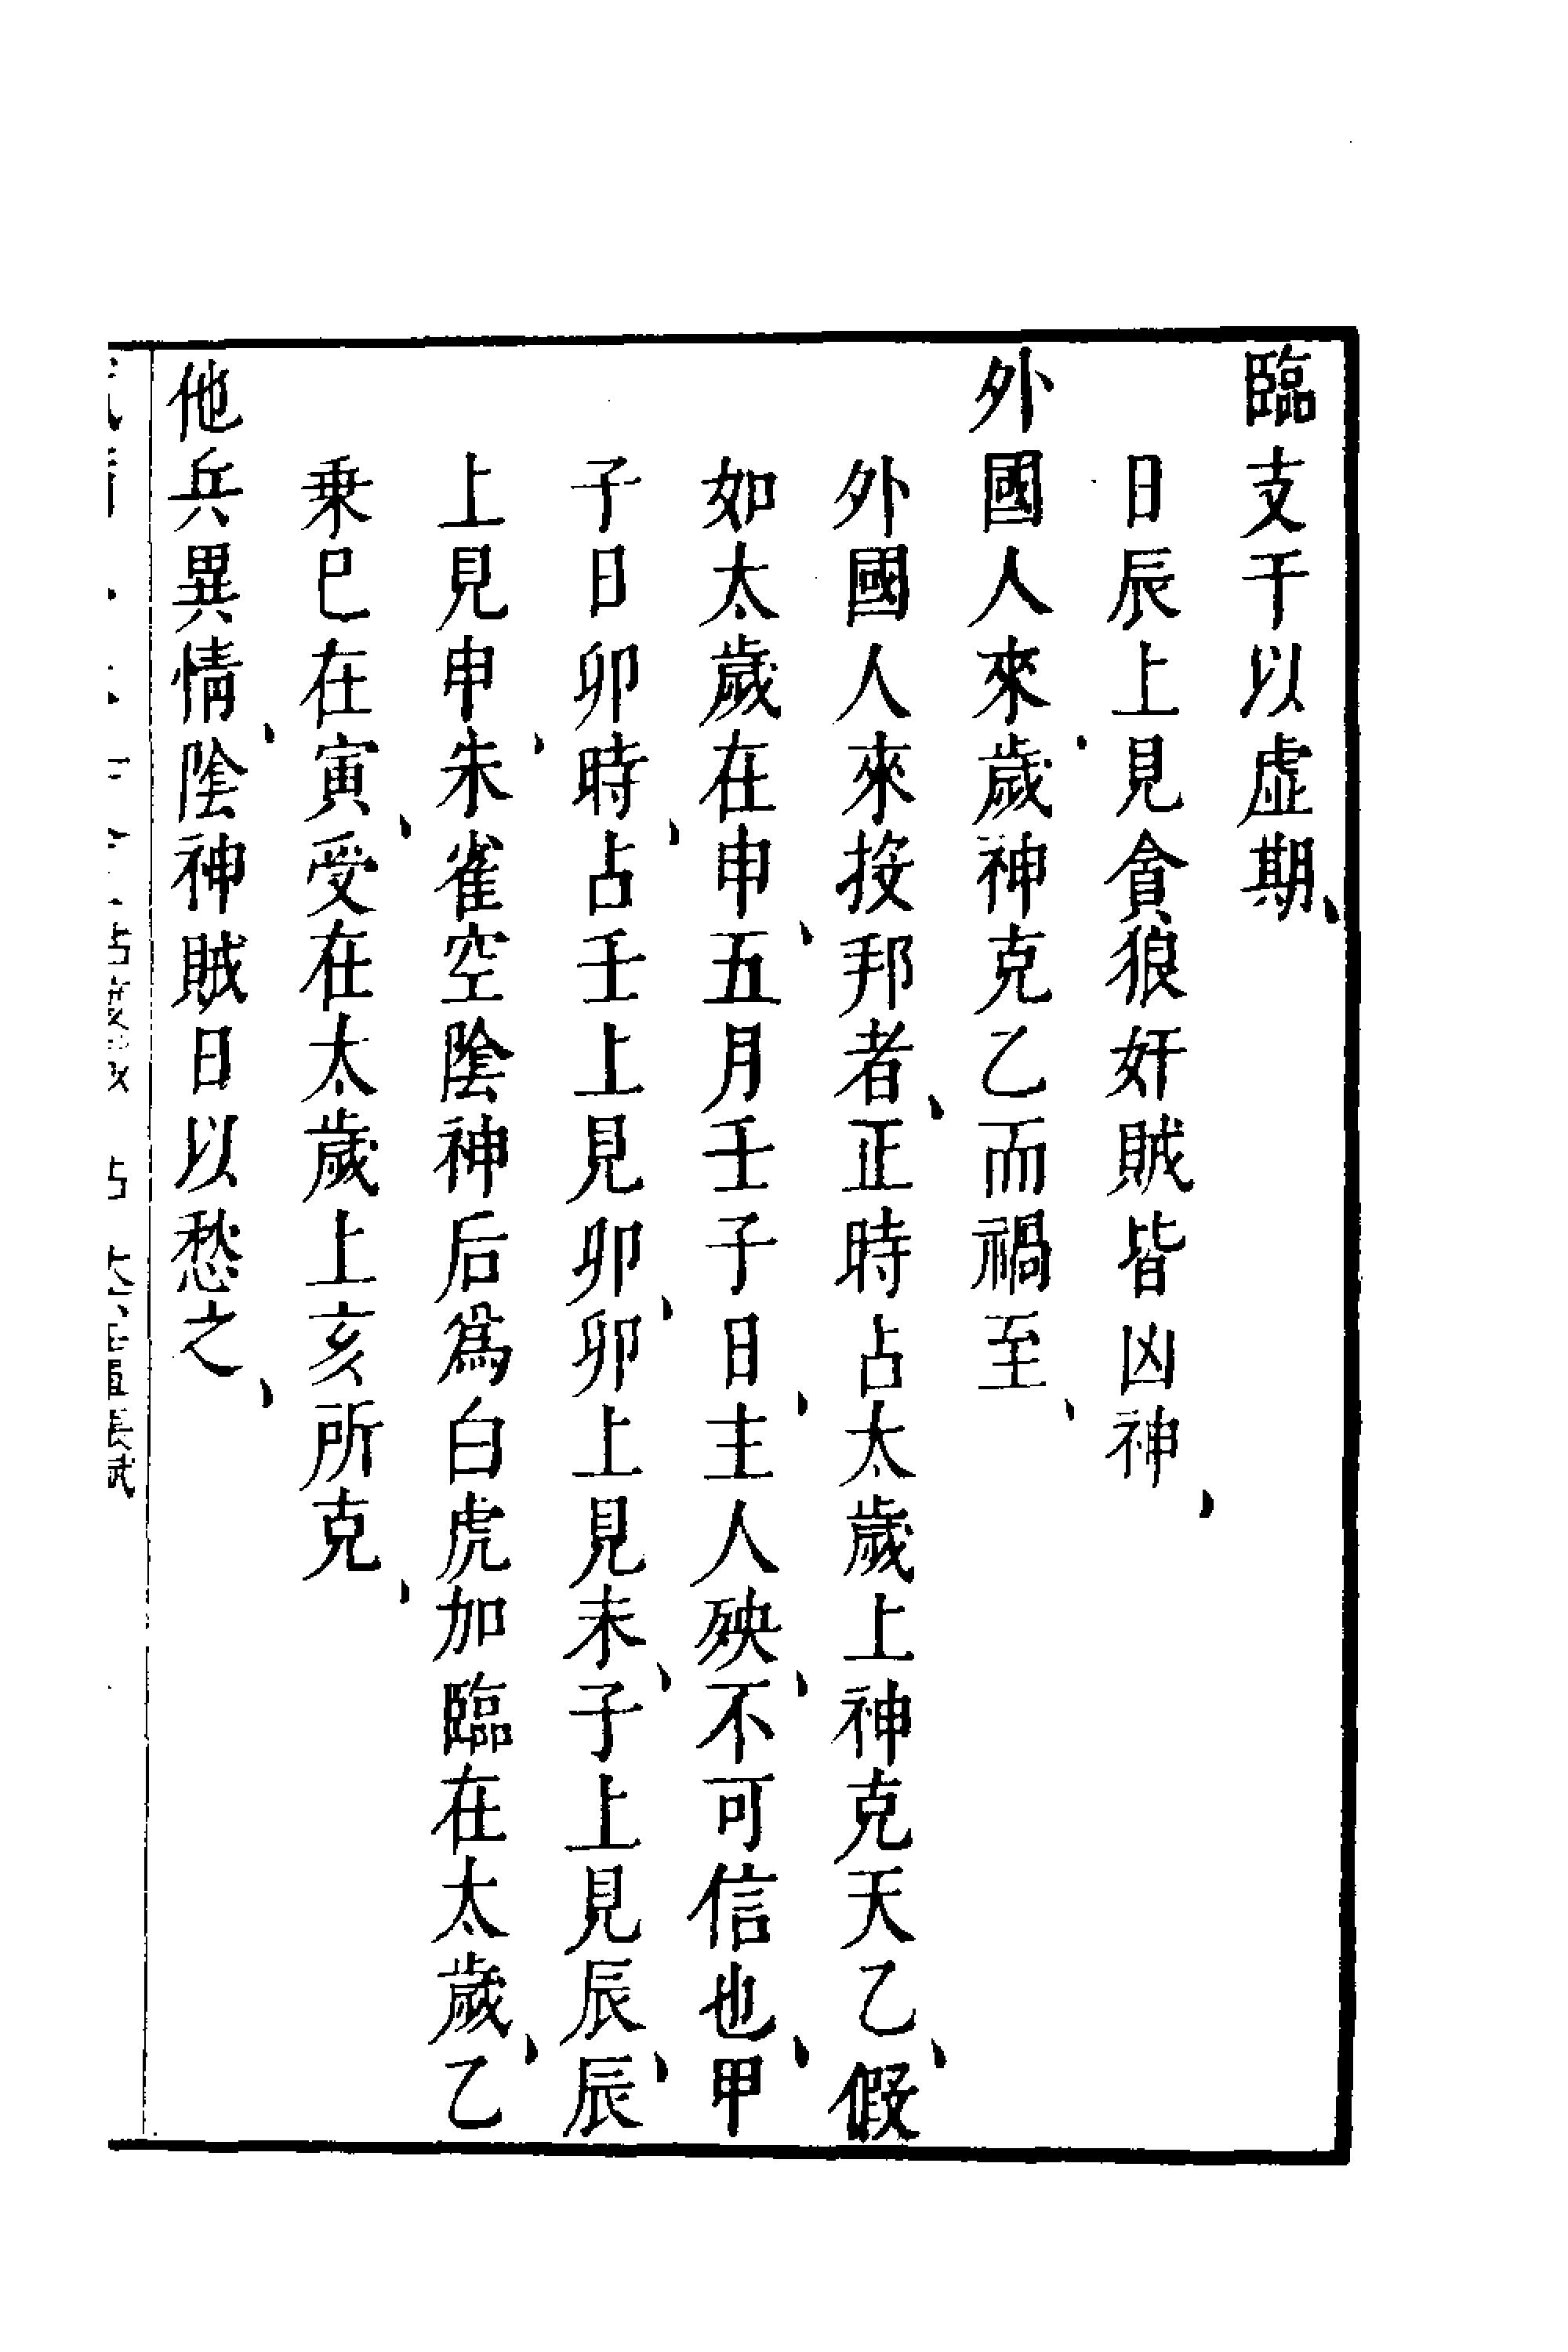 臨支干以虛期、
日辰上見貪狼奸賊皆凶神、
外國人來、歲神克乙而禍至、
外國人來按邦者、正時占太歲上神克天乙、假
如太歲在申、五月壬子日、主人殃、不可信也、甲
子日卯時占、壬上見卯、卯上見未、子上見辰、辰
上見申、朱雀空陰神后爲白虎加臨在太歲、乙
乗巳在寅、受在太歲上亥所克、
他兵異情、陰神賊日以愁之、